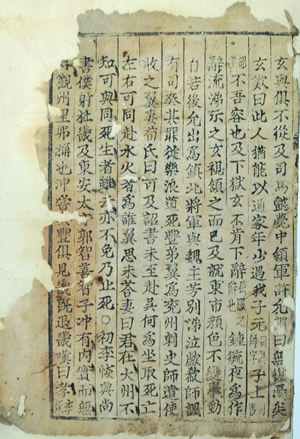 玄與俱不從及司馬懿薨中領軍許允曰無復憂矣
玄歎曰此人猶能以通家年少遇我子元子上
不吾容也及下獄玄不肯下辭鍾毓夜爲作
辭流涕示之玄視頷之而已及就東市顔色不變擧動
自若後允出爲鎮北將軍與魏主芳別涕泣歔欷師諷
有司奏其罪徙樂浪道死豐弟翼爲兗州刺史師遣使
收之翼妻荀氏曰可及詔書未至赴吳何爲坐取死亡
左右可同赴水火者爲誰翼思未荅妻曰君在大州不
知可與同死生者雖去亦不免乃止死○初李恢與尚
書僕射杜畿及東安太郭智善智子冲有內實而無
觀州里弗稱也冲嘗豐俱見畿旣退畿嘆曰孝